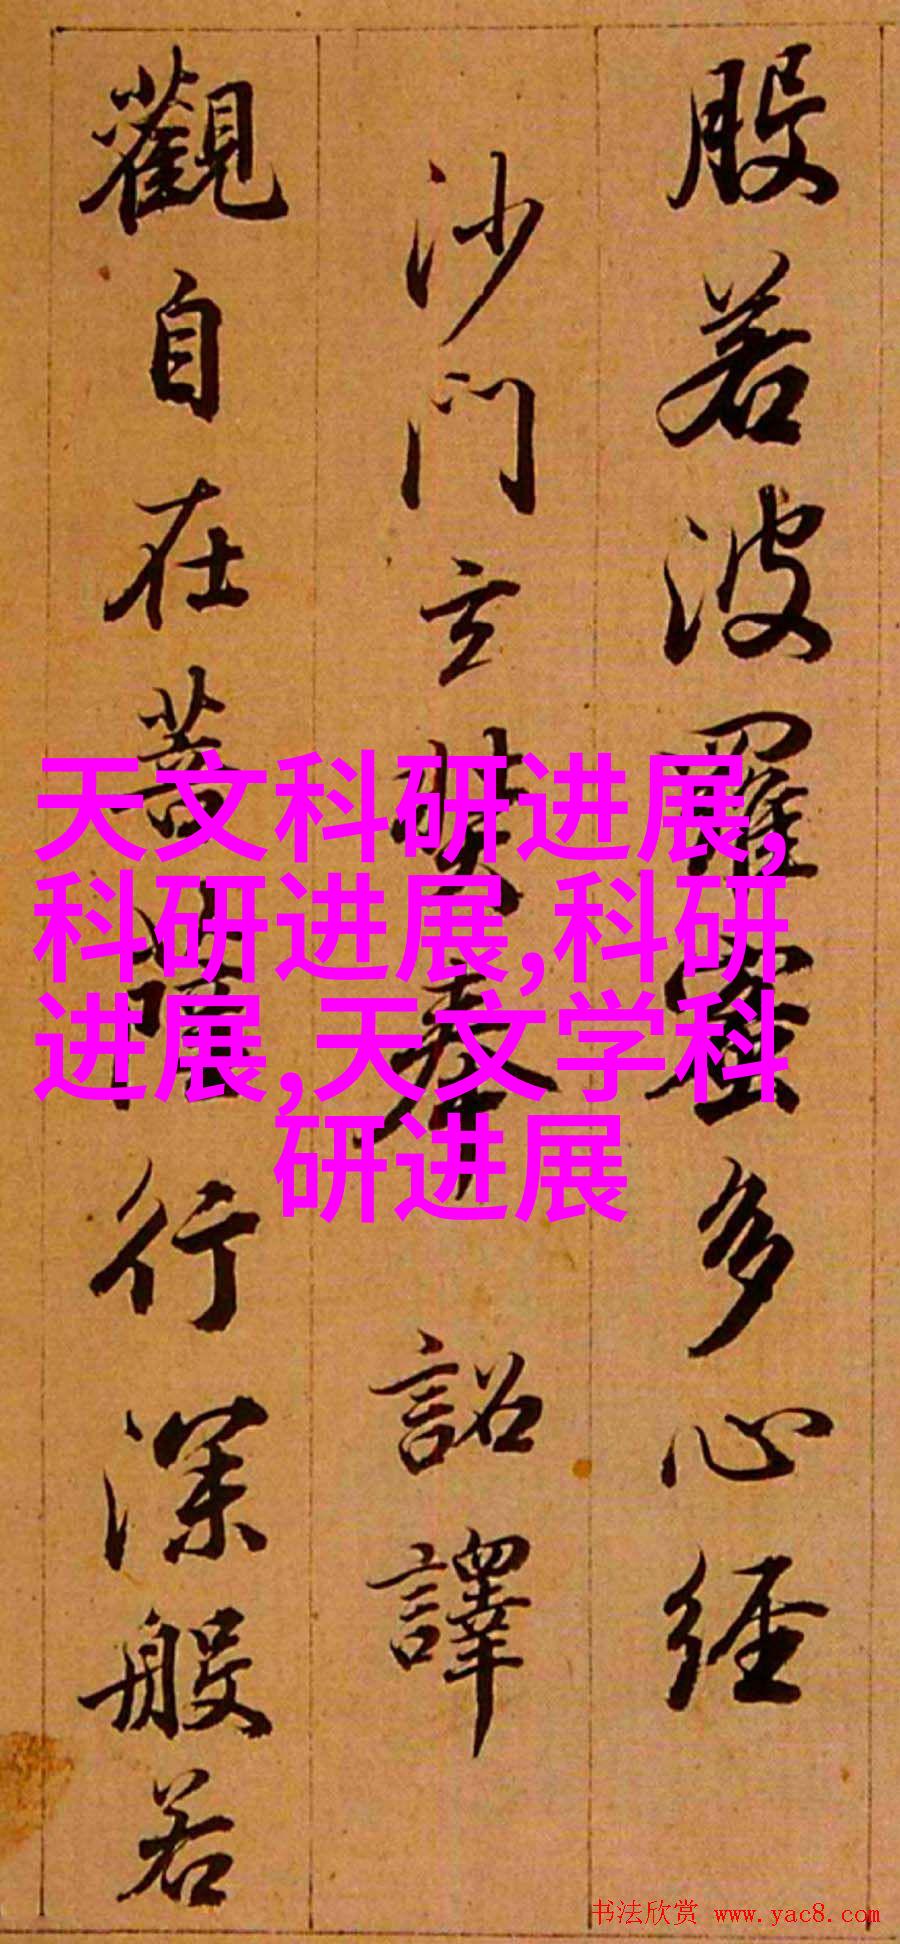 般若波羅蜜多心経
沙門玄奘奉 詔譯
觀自在菩薩行深般若
天文科研进展,
科研进展,科研
进展,天文学科
研进展
书法欣赏 www.yac8.com